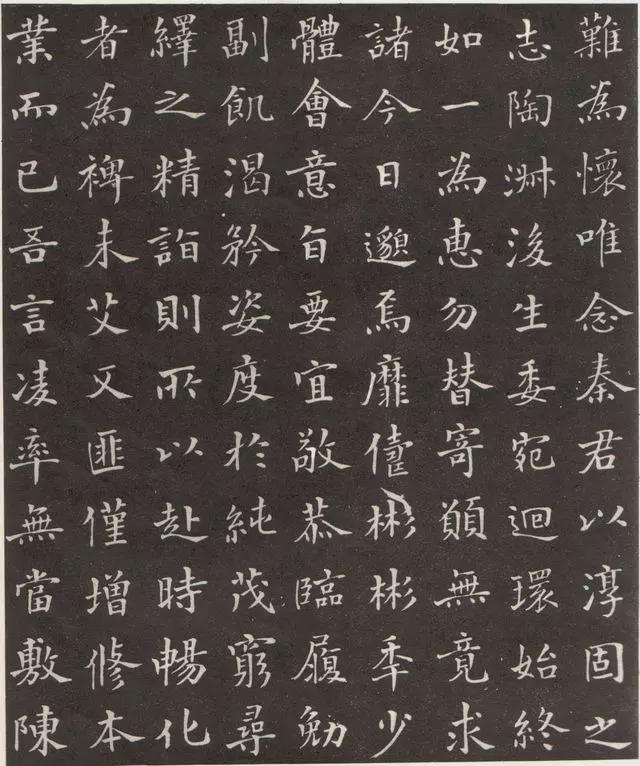 難為懷唯念秦君以淳固之
志陶淋後生委宛迴環始終
如一為恵勿替寄願無竟求
諸今日邈焉靡儔彬彬秊少
體會意旨要宜敬恭臨履勉
副飢渴矜姿度於純茂窮尋
繹之精詣則所以赴時暢化
者為裨未艾又匪僅增修本
業而已吾言凌率無當敷陳